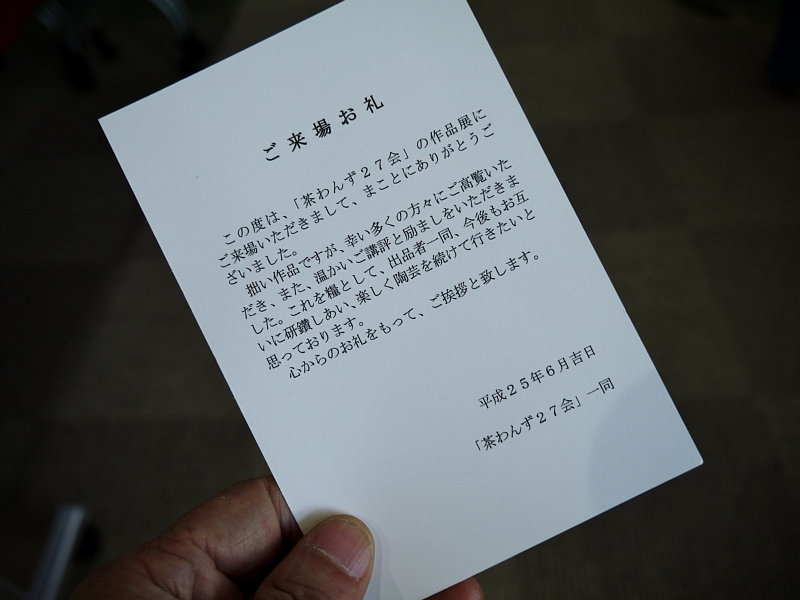 ご来場お礼
この度は、「茶わんず２７会」の作品展に
ご来場いただきまして、まことにありがとうご
ざいました。
拙い作品ですが、幸い多くの方々にご高覧いた
だき、また、温かいご講評と励ましをいただきま
した。これを糧として、出品者一同、今後もお互
いに研鑽しあい、楽しく陶芸を続けて行きたいと
思っております。
心からのお礼をもって、ご挨拶と致します。
平成２５年６月吉日
「茶わんず２７会」一同